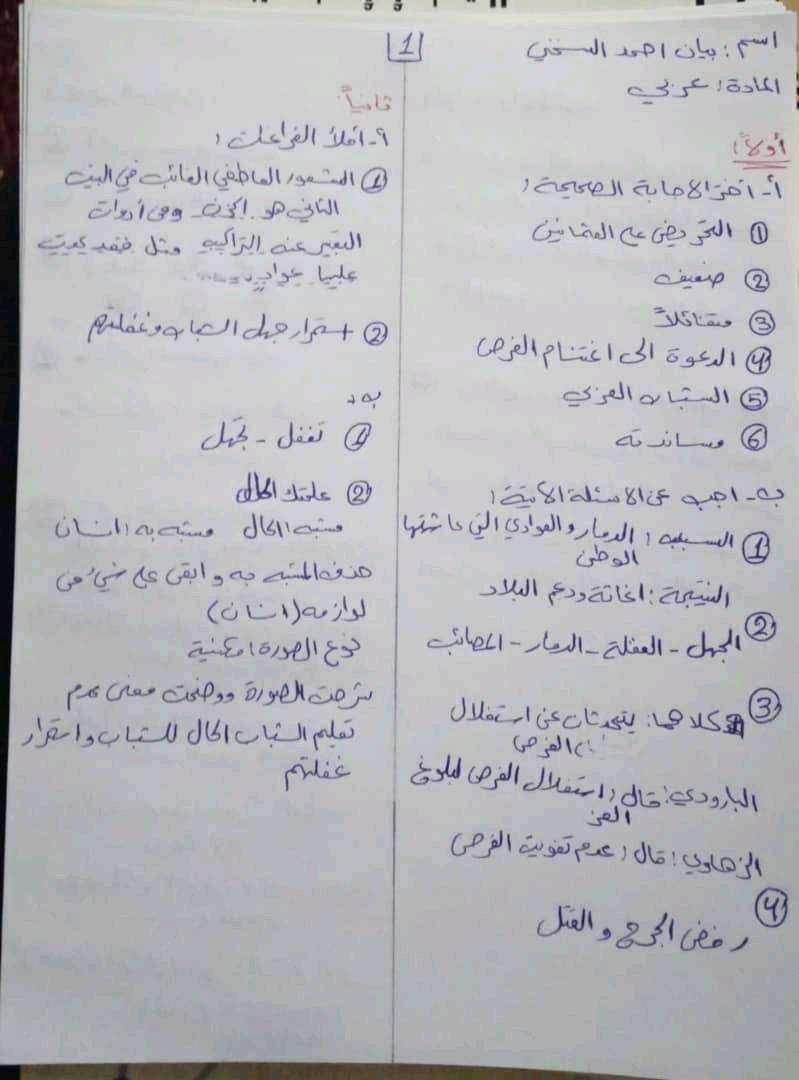 1
اسم: بيان احمد السخني
المادة: عربي
أولاً:
أ- اختر الاجابة الصحيحة:
① التحريض على العثمانين
② ضعيف
③ متفائلاً
④ الدعوة الى اغتنام الفرص
⑤ الشباب العربي
⑥ مساندته
ب- اجب عن الاسئلة الآتية:
① السبب: الدمار والعوادي التي عاشتها
الوطن
النتيجة: اغاثة ودعم البلاد
② الجهل - الغفلة - الدمار - المصائب
③ كلاهما: يتحدثان عن استغلال
الفرص
البارودي: قال: استغلال الفرص لبلوغ
العز
الزهاوي: قال: عدم تفويت الفرص
④
رفض الجرح و القتل
ثانياً:
أ- املأ الفراغات:
① الشعور العاطفي الغائب في البيت
الثاني هو الحزن ومن أدوات
التعبير عنه التراكيب مثل فقد
عليها عوادٍ
② استمرار جهل الشباب وغفلتهم
ب-
① تغفل - تجهل
② علمتك الحال
مشبه: الحال مشبه به: انسان
حذف المشبه به وابقى على شيء من
لوازمه (انسان)
نوع الصورة: مكنية
شرحت الصورة ووضحت معنى عدم
تعليم الشباب الحال للشباب واستمرار
غفلتهم